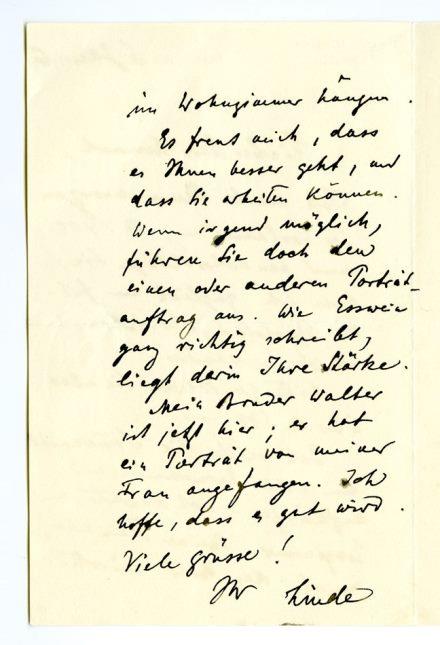 im Wohnzimmer hängen.
Es freut mich, dass
es Ihnen besser geht, und
dass Sie arbeiten können.
Wenn irgend möglich,
führen Sie doch den
einen oder anderen Porträt-
auftrag aus. Wie Esswein
ganz richtig schreibt,
liegt darin Ihre Stärke.
Mein Bruder Walter
ist jetzt hier; er hat
ein Porträt von meiner
Frau angefangen. Ich
hoffe, dass es gut wird.
Viele grüsse!
Ihr Linde